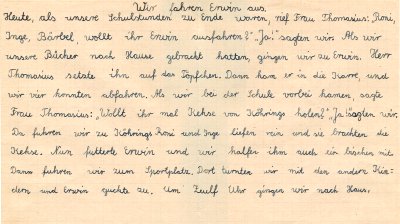 Wir fahren Erwin aus.
Heute, als unsere Schulstunden zu Ende waren, rief Frau Thomasius: „Roni,
Inge, Bärbel, wollt ihr Erwin ausfahren?" „Ja!" sagten wir. Als wir
unsere Bücher nach Hause gebracht hatten, gingen wir zu Erwin. Herr
Thomasius setzte ihn auf das Töpfchen. Dann kam er in die Karre, und
wir vier konnten abfahren. Als wir bei der Schule vorbei kamen, sagte
Frau Thomasius: „Wollt ihr mal Kekse von Köhrings holen?" „Ja!" sagten wir.
Da fuhren wir zu Köhrings. Roni und Inge liefen rein und sie brachten die
Kekse. Nun futterte Erwin und wir halfen ihm auch ein bischen mit.
Dann fuhren wir zum Sportplatz. Dort turnten wir mit den andern Kin-
dern und Erwin guckte zu. Um Zwölf Uhr gingen wir nach Haus.